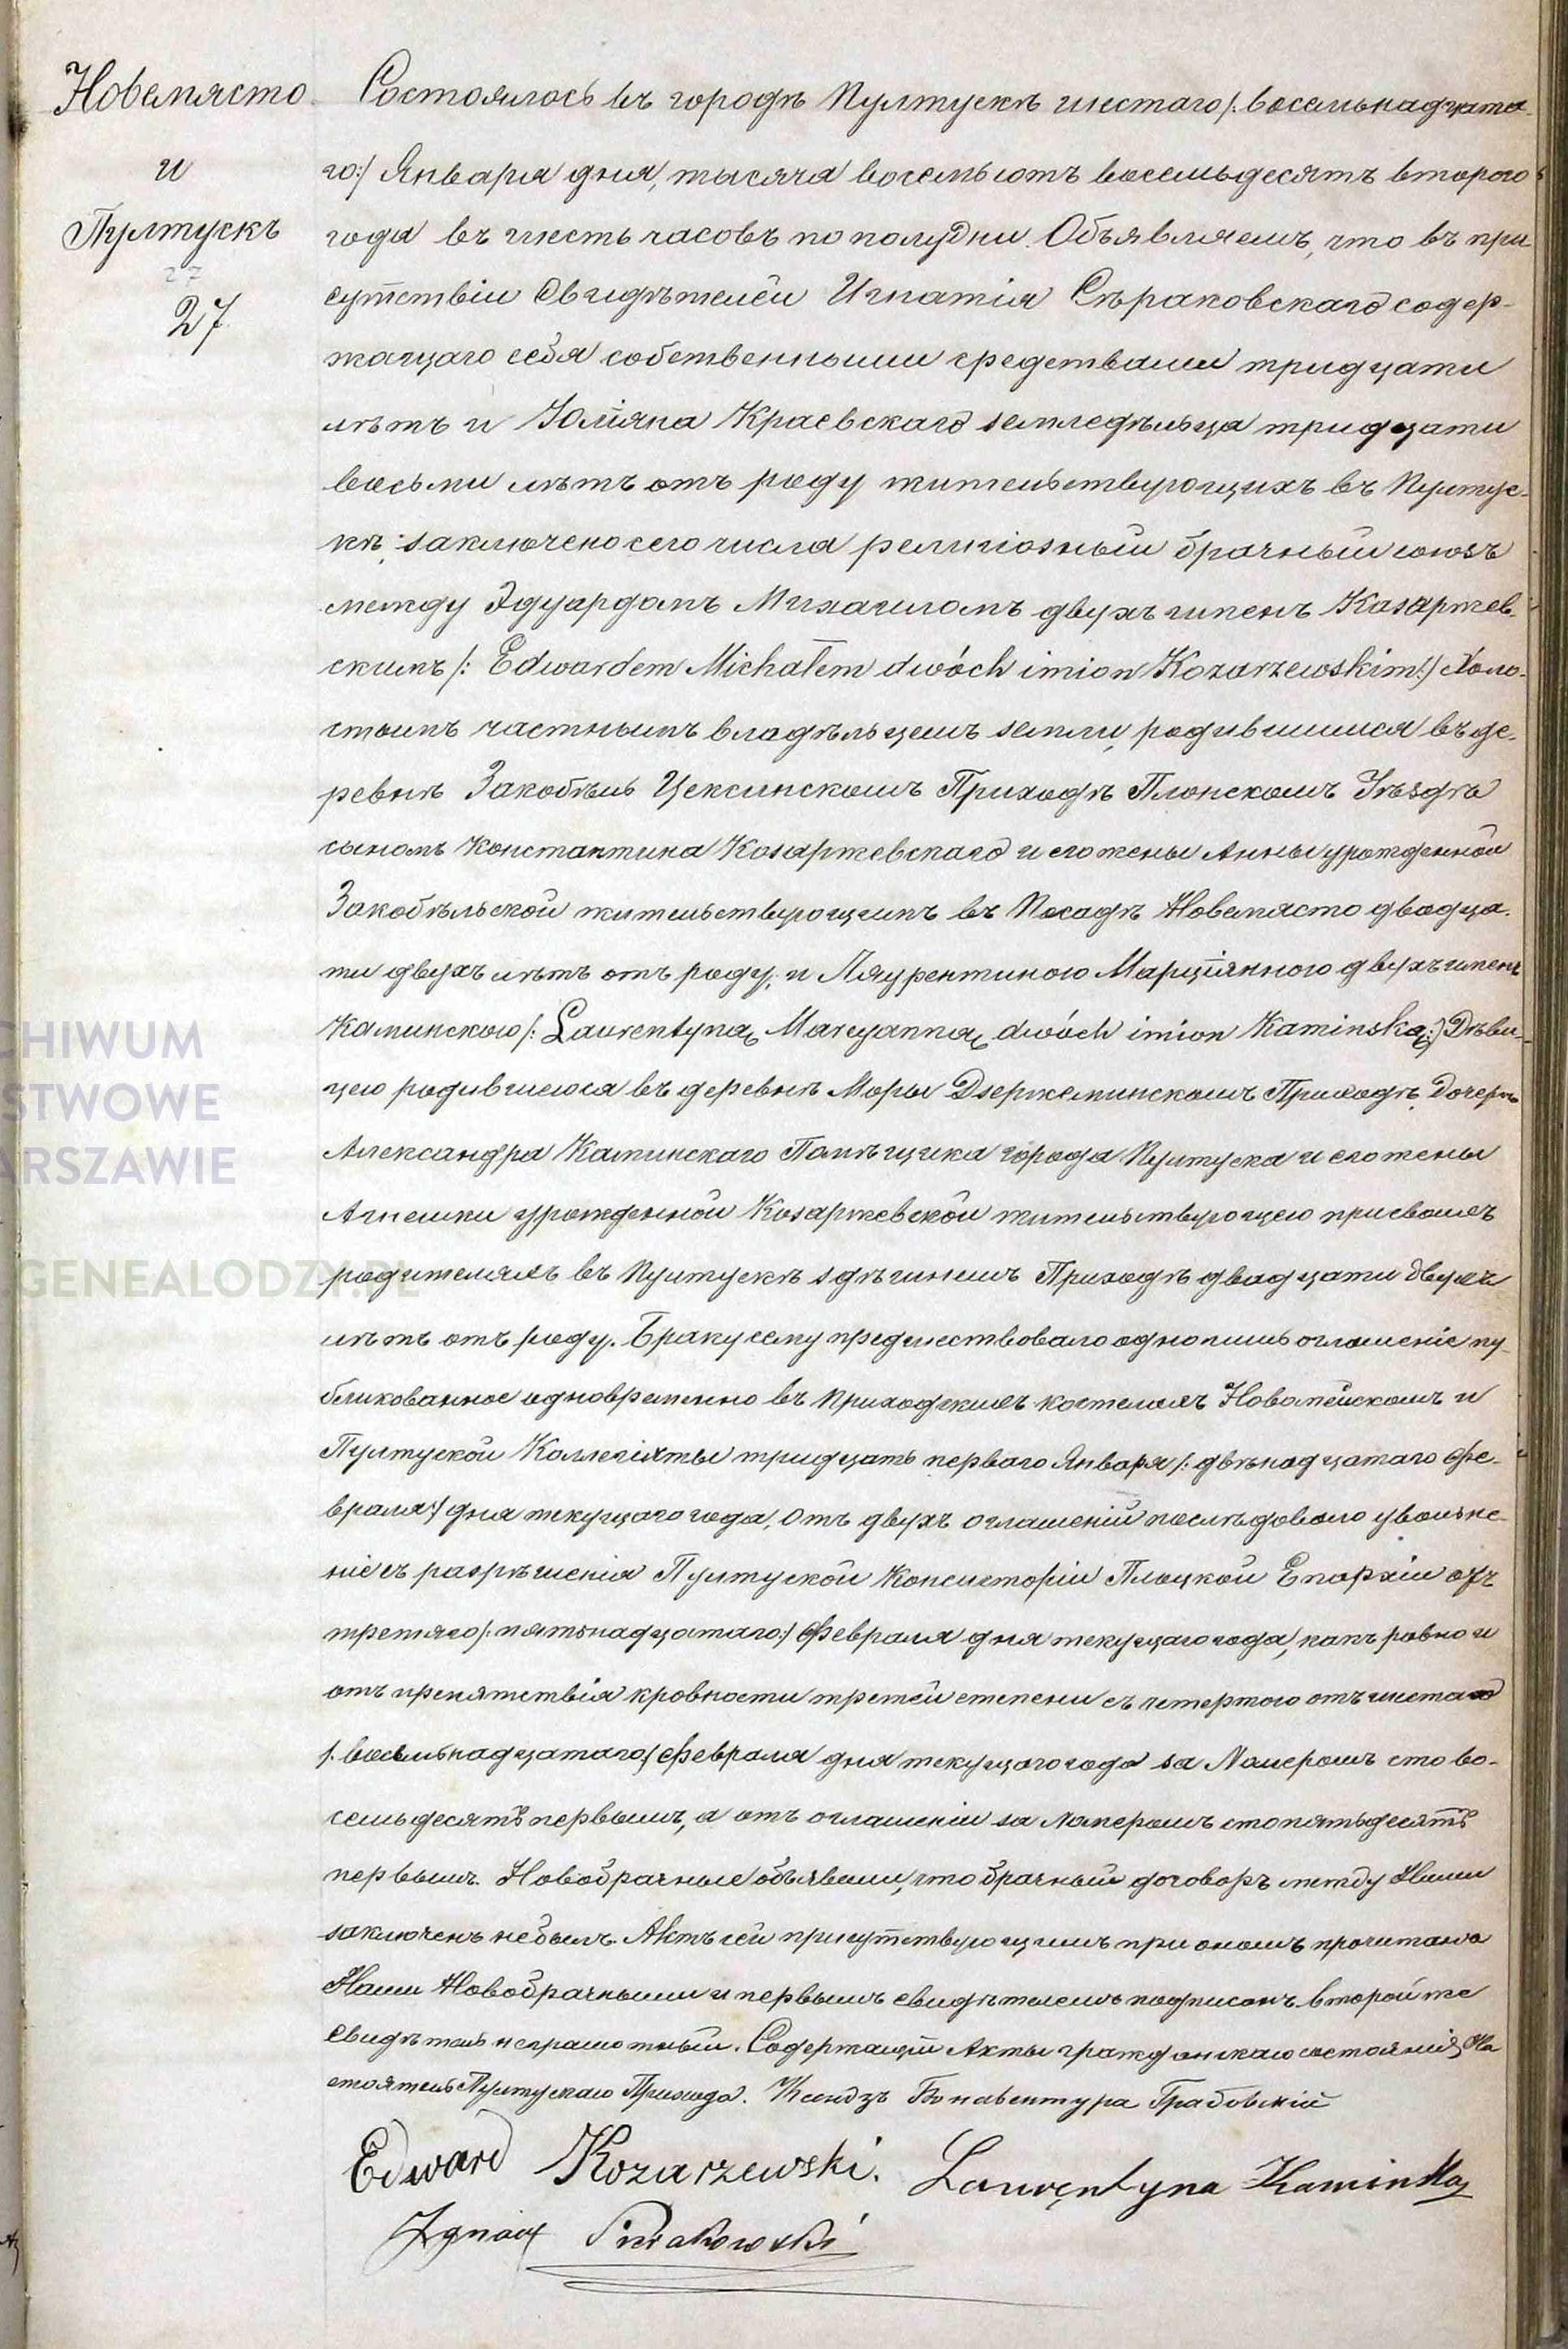 Новемясто
и
Пултускъ
27
27
Состоялось въ городѣ Пултускѣ шестаго /: восемьнадцата-
го:/ Января дня, тысяча восемьсотъ восемьдесятъ второго
года въ шесть часовъ по полудни. Объявляемъ, что въ при
сутствіи Свидѣтелей Игнатія Сѣраковскаго содер-
жащаго себя собственными средствами тридцати
лѣтъ и Юліяна Краевскаго земледѣльца тридцати
восьми лѣтъ отъ роду жительствующихъ въ Пултус-
кѣ; заключено сего числа религіозный брачный союзъ
между Эдуардомъ Михаиломъ двухъ именъ Казаржев-
скимъ /: Edwardem Michałem dwóch imion Kozarzewskim:/ Холо-
стымъ частнымъ владѣльцемъ земли, родившимся въ де-
ревнѣ Закобѣль Цексинскомъ Приходѣ Плонскомъ Уѣздѣ
сыномъ Константина Козаржевскаго и его жены Анны урожденной
Закобѣльской жительствующимъ въ Посадѣ Новемясто двадца-
ти двухъ лѣтъ отъ роду, и Ляурентиною Марціянною двухъ именъ
Каминскою /: Laurentyną Marcyanną dwóch imion Kaminską:/ Дѣви-
цею родившеюся въ деревнѣ Моры Дзержеминскомъ Приходѣ, Дочерь
Александра Каминскаго Помѣщика города Пултуска и его жены
Агнешки урожденной Козаржевской жительствующею при своихъ
родителяхъ въ Пултускѣ здѣшнемъ Приходѣ двадцати двухъ
лѣтъ отъ роду. Браку сему предшествовало однолишь оглашеніе пу-
бликованное одновременно въ Приходскихъ костелахъ Новомейскомъ и
Пултуской Коллегіяты тридцать перваго Января /: двѣнадцатаго Фе-
враля:/ дня текущаго года, Отъ двухъ оглашеній послѣдовало увольне-
ніе съ разрѣшенія Пултуской Консисторіи Плоцкой Епархіи отъ
третяго /: пятьнадцатаго:/ Февраля дня текущаго года, какъ ровно и
отъ препятствія кровности третей степени съ четертою отъ шестаго
/: восемьнадцатаго:/ Февраля дня текущаго года за Номеромъ сто во-
семьдесятъ первымъ, а отъ оглашеніи за Номеромъ сто пятьдесятъ
первымъ. Новобрачные объявили, что брачный договоръ между Ними
заключенъ небылъ. Актъ сей присутствующимъ при ономъ прочитано
Нами Новобрачными и первымъ свидѣтелемъ подписанъ второй же
свидѣтель неграмотный. Содержащій Акты гражданскаго состоянія, На
стоятель Пултускаго Прихода. Ксендзъ Бонавентура Градовскій
Edward Kozarzewski. Laurentyna Kaminska
Ignacy Sierakowski
CHIWUM
STWOWE
ARSZAWIE
.GENEALODZY.PL